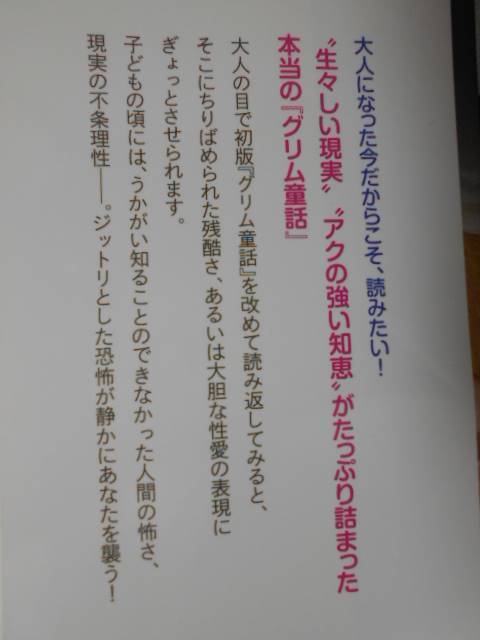 大人になった今だからこそ、読みたい！
〝生々しい現実〟〝アクの強い知恵〟がたっぷり詰まった
本当の『グリム童話』
大人の目で初版『グリム童話』を改めて読み返してみると、
そこにちりばめられた残酷さ、あるいは大胆な性愛の表現に
ぎょっとさせられます。
子どもの頃には、うかがい知ることのできなかった人間の怖さ、
現実の不条理性――。ジットリとした恐怖が静かにあなたを襲う！